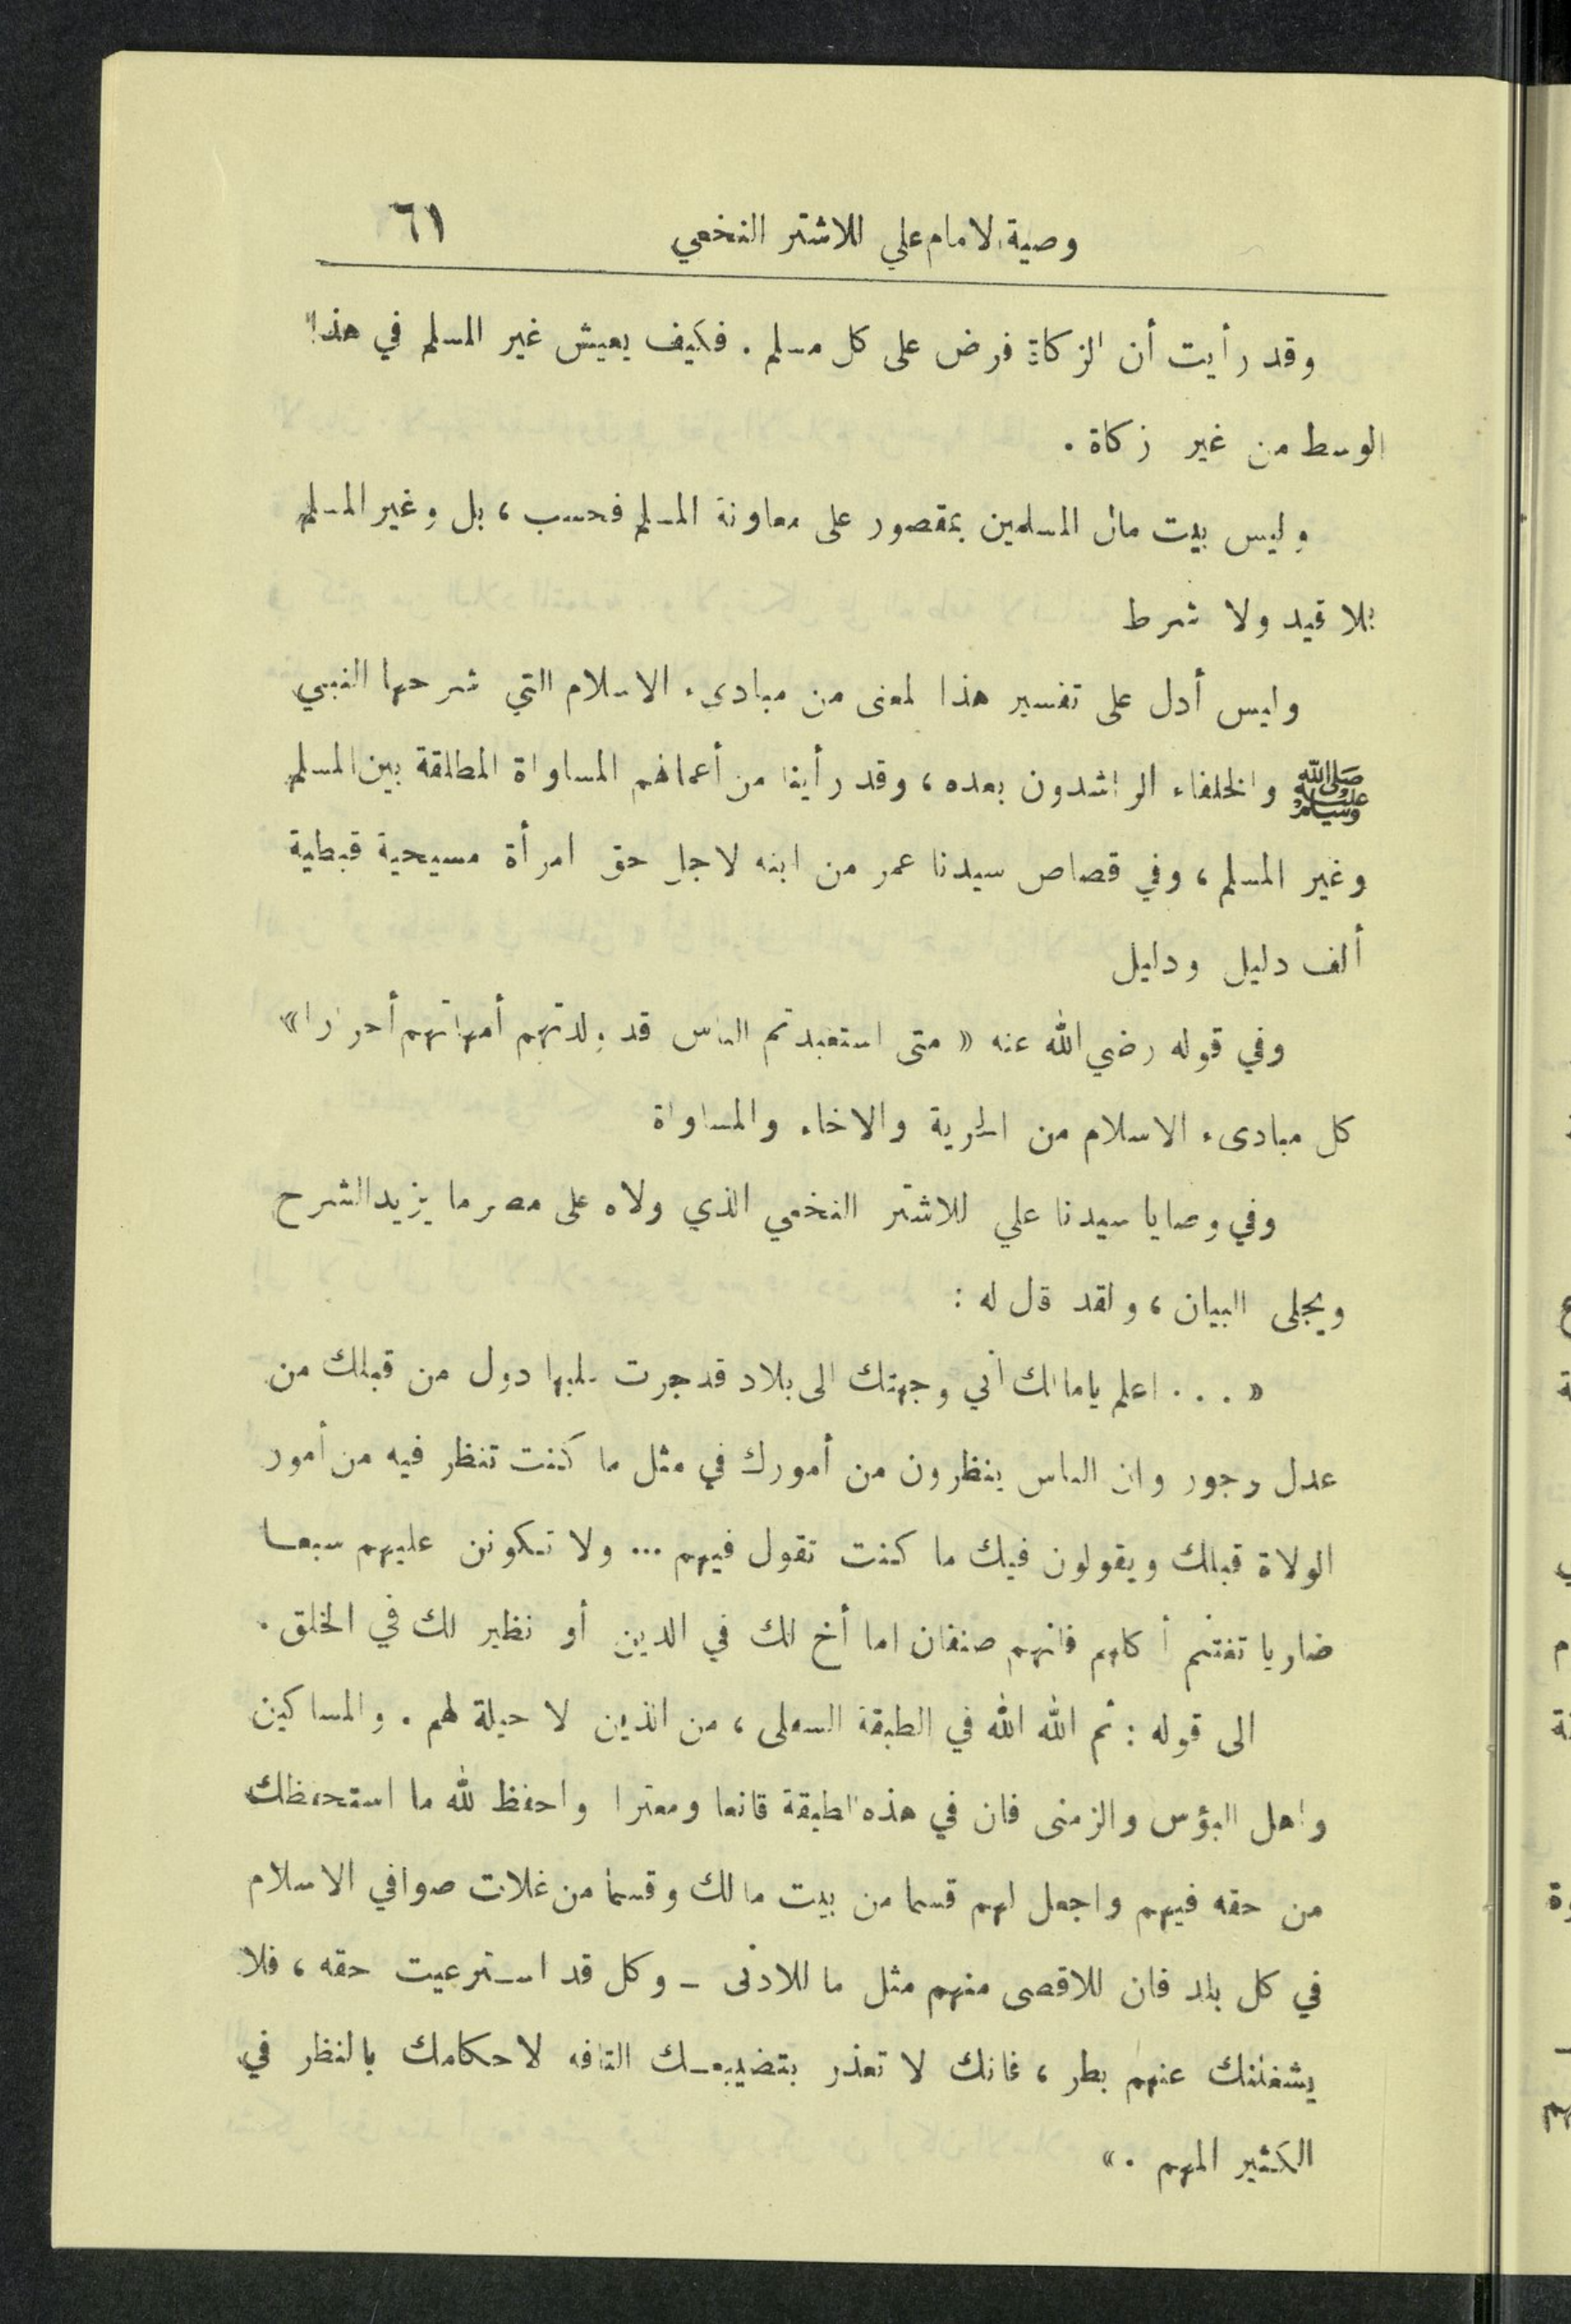 وصية الامام علي للاشتر النخعي ٦١
وقد رأيت أن الزكاة فرض على كل مسلم . فكيف يعيش غير المسلم في هذا
الوسط من غير زكاة .
وليس بيت مال المسلمين بمقصور على معاونة المسلم فحسب ، بل وغير المسلم
بلا قيد ولا شرط
وليس أدل على تفسير هذا المعنى من مبادىء الاسلام التي شرحها النبي
ﷺ والخلفاء الراشدون بعده ، وقد رأينا من أعمالهم المساواة المطلقة بين المسلم
وغير المسلم ، وفي قصاص سيدنا عمر من ابنه لاجل حق امرأة مسيحية قبطية
ألف دليل ودليل
وفي قوله رضي الله عنه « متى استعبدتم الناس قد ولدتهم أمهاتهم أحرارا »
كل مبادىء الاسلام من الحرية والاخاء والمساواة
وفي وصايا سيدنا علي للاشتر النخعي الذي ولاه على مصر ما يزيد الشرح
ويجلى البيان ، ولقد قال له :
« . . . اعلم يامالك أني وجهتك الى بلاد قد جرت عليها دول من قبلك من
عدل وجور وان الناس ينظرون من أمورك في مثل ما كنت تنظر فيه من أمور
الولاة قبلك ويقولون فيك ما كنت تقول فيهم ... ولا تكونن عليهم سبعا
ضاريا تغتنم أكلهم فانهم صنفان اما أخ لك في الدين أو نظير لك في الخلق .
الى قوله : ثم الله الله في الطبقة السفلى ، من الذين لا حيلة لهم . والمساكين
واهل البؤس والزمنى فان في هذه الطبقة قانعا ومعترا واحفظ لله ما استحفظك
من حقه فيهم واجعل لهم قسما من بيت مالك وقسما من غلات صوافي الاسلام
في كل بلد فان للاقصى منهم مثل ما للادنى - وكل قد استرعيت حقه ، فلا
يشغلنك عنهم بطر ، فانك لا تعذر بتضييعك التافه لاحكامك بالنظر في
الكثير المهم . »